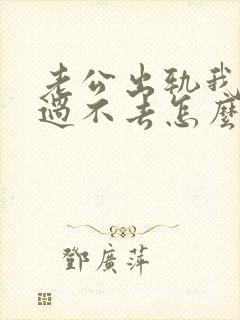 老公出轨我
過不去怎麼
鄧廣萍